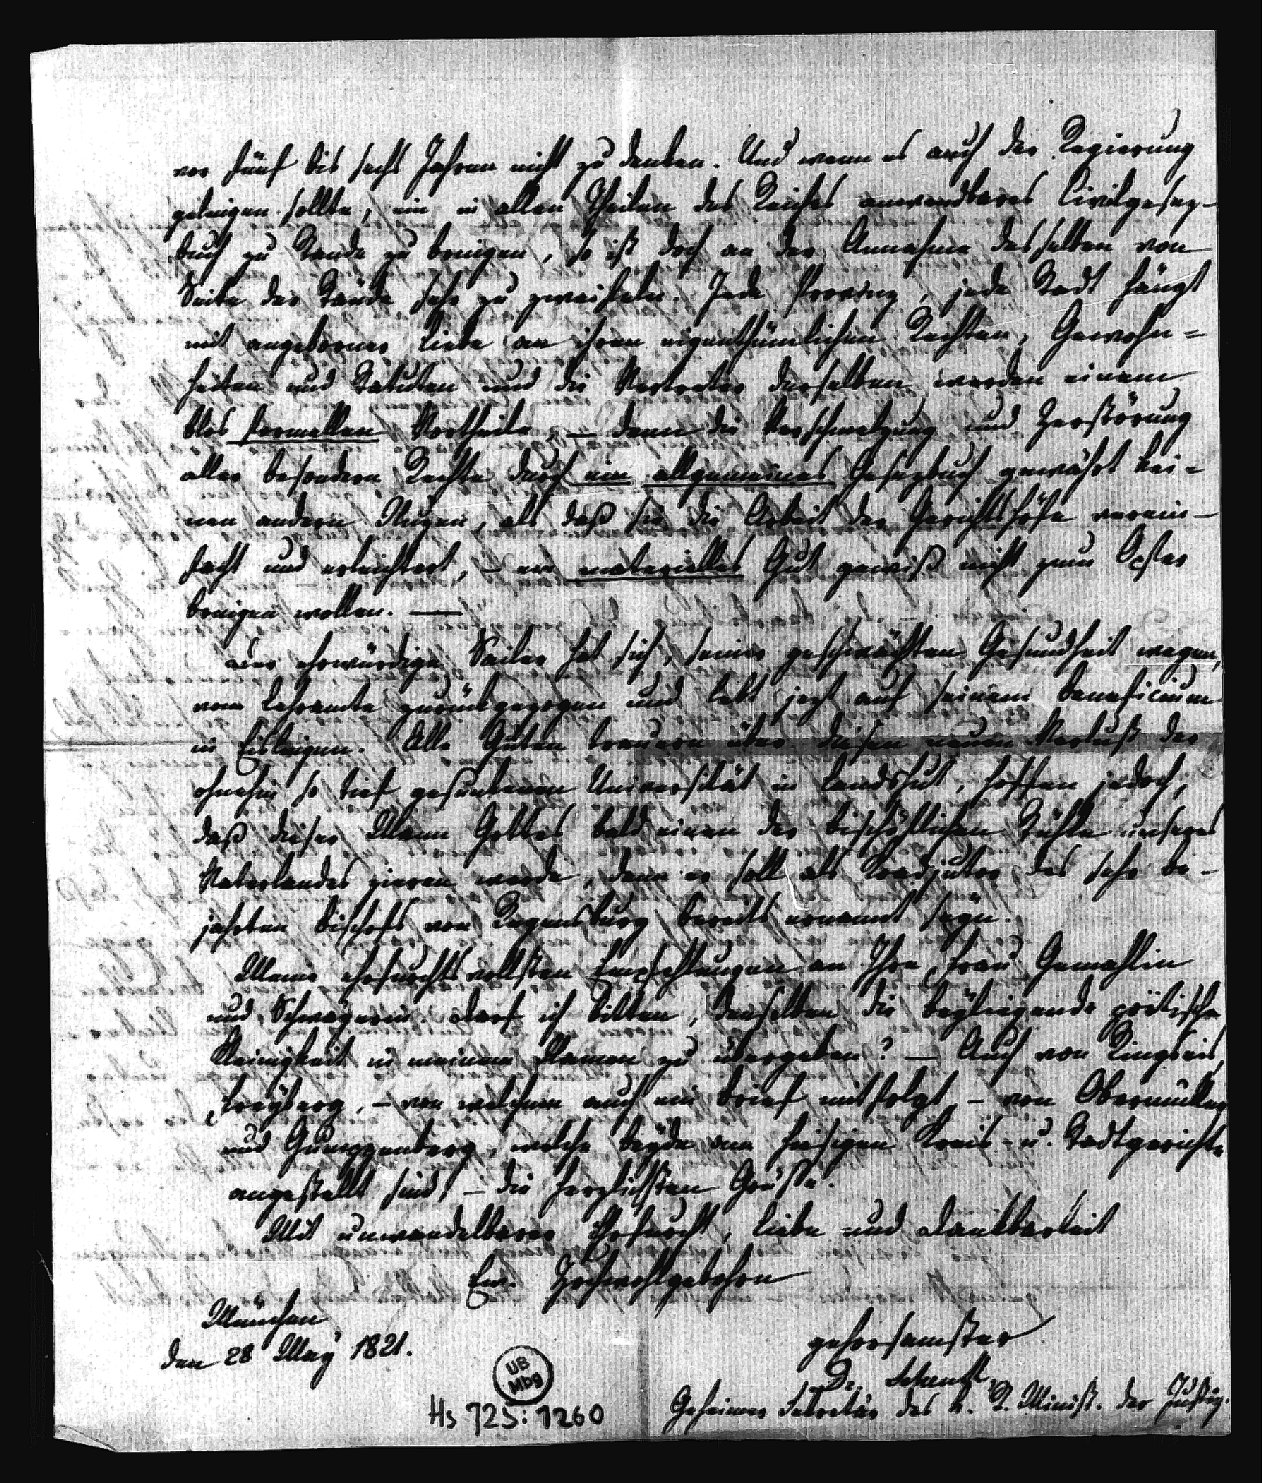 vor fünf bis sechs Jahren nicht zu denken. Und wenn es auch der Regierung
gelingen sollte, ein in allen Theilen des Reiches anwendbares Civilgesez-
buch zu Stande zu bringen, so ist doch an der Annahme desselben von
Seite der Stände sehr zu zweifeln. Jede Provinz, jede Stadt hängt
mit angeborner Liebe an ihren eigenthümlichen Rechten, Gewohn=
heiten und Statuten und die Vertreter derselben werden einem
blos formellen Vortheile – denn die Verschmelzung und Zerstörung
aller besondern Rechte durch ein allgemeines Gesezbuch gewährt kei-
nen andern Nuzen, als daß sie die Arbeit der Gerichtshöfe verein-
facht und erleichtert, – ein materielles Gut gewiß nicht zum Opfer
bringen wollen. —
Der ehrwürdige Sailer hat sich, seiner geschwächten Gesundheit wegen,
vom Lehramte zurückgezogen und lebt jezt auf seinem Beneficium
in Aislingen. Alle Guten trauern über diesen neuen Verlust der
ohnehin so tief gesunkenen Universität in Landshut, hoffen jedoch,
daß dieser Mann Gottes bald einen der bischöflichen Stühle unseres
Vaterlandes zieren werde, denn er soll als Coadjutor des sehr be-
jahrten Bischofs von Regensburg bereits ernannt seyn.
Meine ehrfurchtsvollsten Empfehlungen an Ihre Frau Gemahlin
und Schwägerin. Darf ich bitten, derselben die beyliegende poëtische
Kleinigkeit in meinem Namen zu übergeben? – Auch von Ringseis,
Freyberg, – von welchem auch ein Brief mitfolgt – von Obermüller
und Gumppenberg, welche beyde am hiesigen Kreis- u. Stadtgerichte
angestellt sind, – die herzlichsten Grüße.
Mit unwandelbarer Ehrfurcht, Liebe und Dankbarkeit
Ew. Hochwohlgebohrn
München
den 28 May 1821.
gehorsamster
Dr. Schenk,
Geheimer Sekretär des k. St. Minist. der Justiz.
UB
Mbg
Hs 725:1260